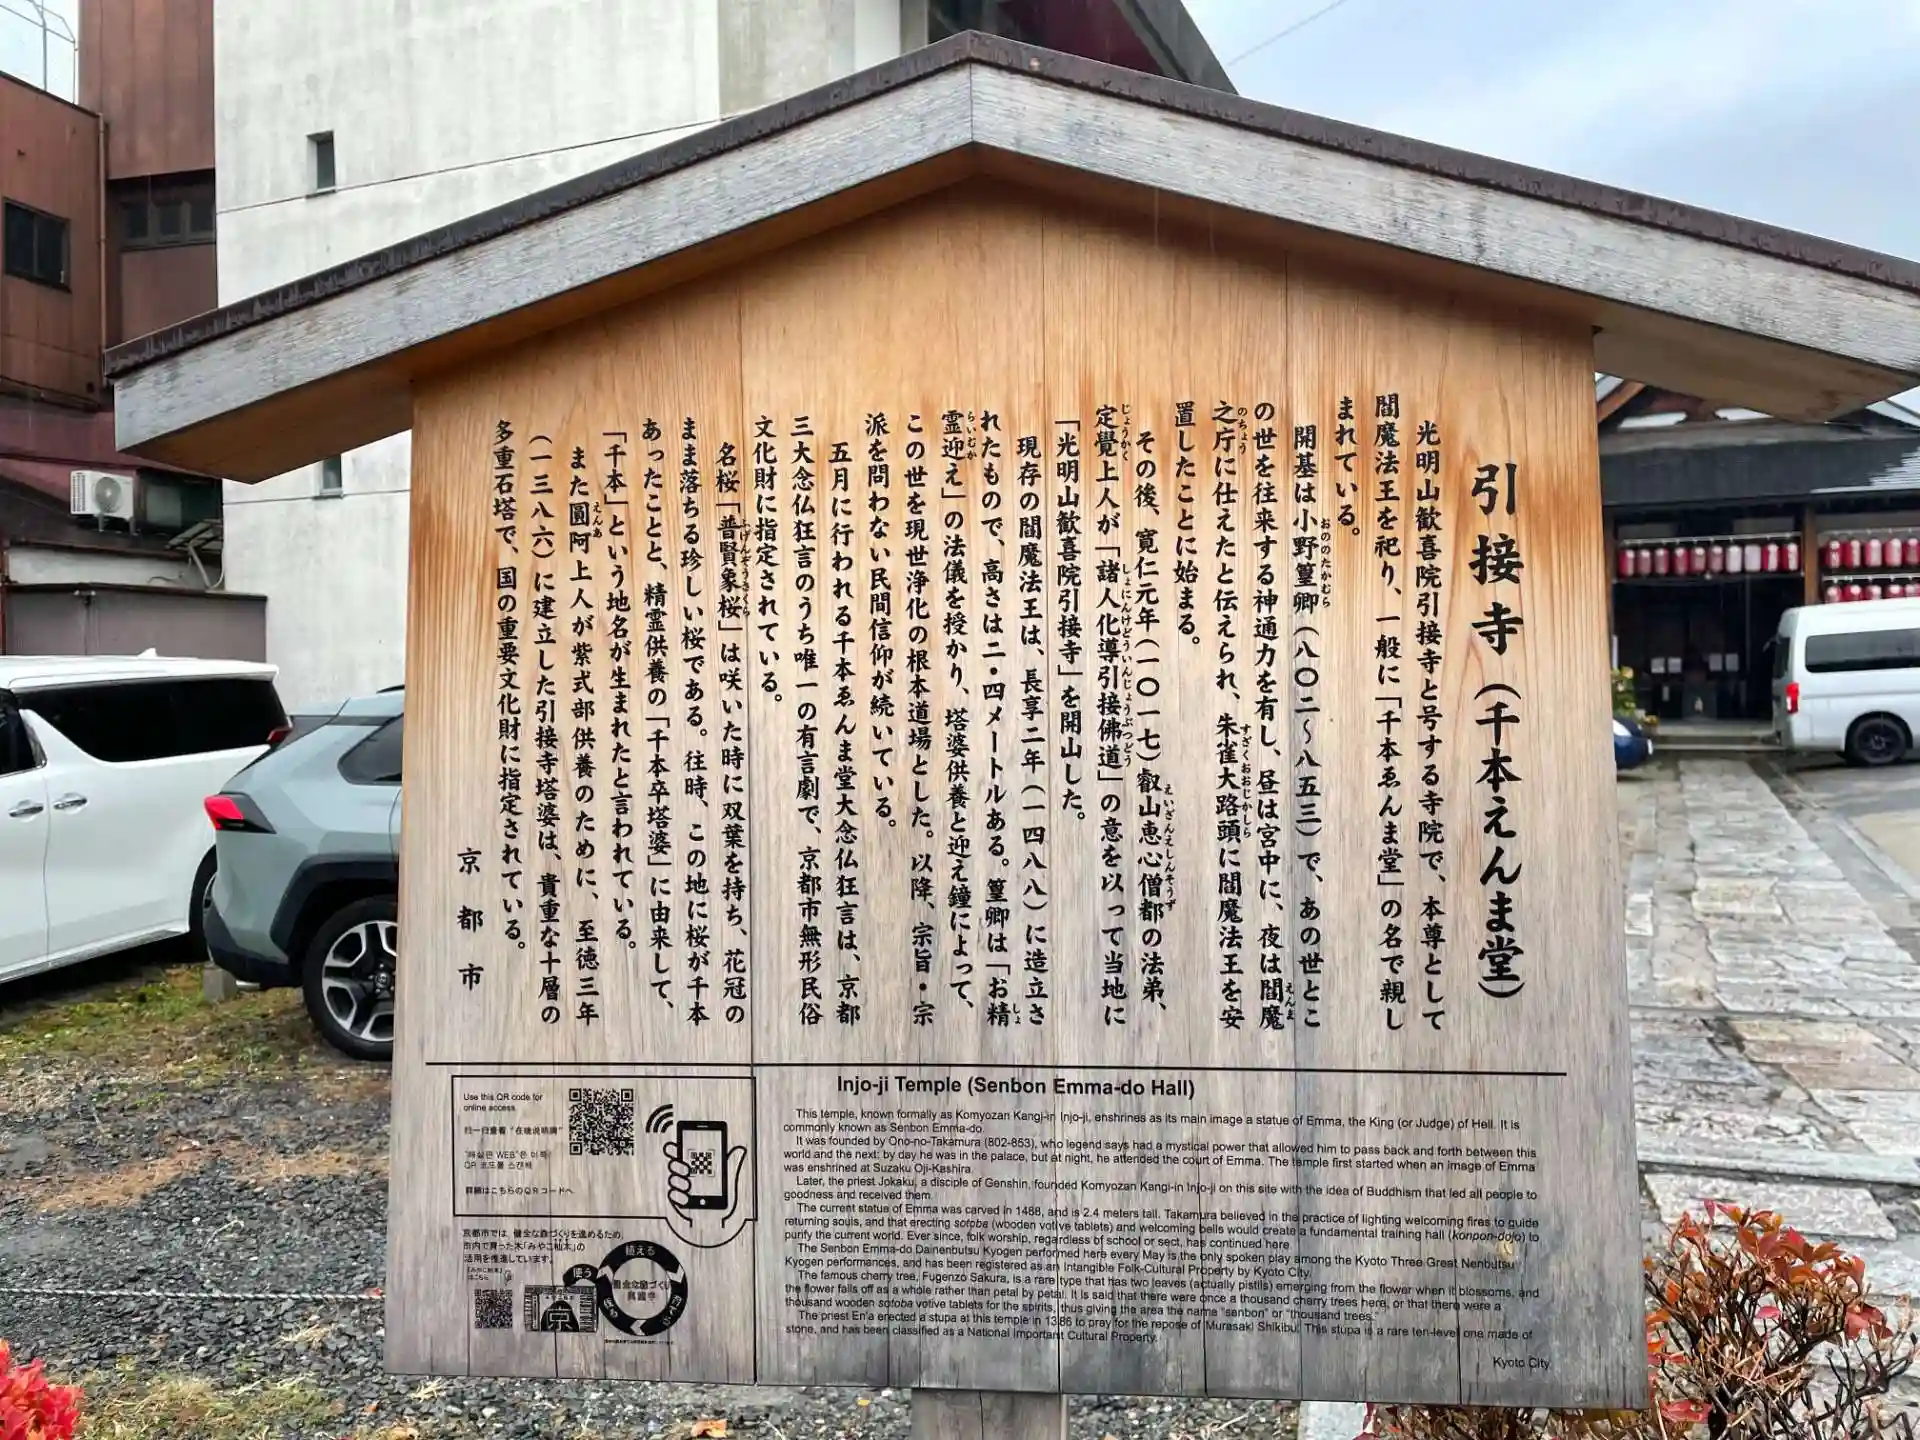 引接寺（千本えんま堂）
光明山歓喜院引接寺と号する寺院で、本尊として
閻魔法王を祀り、一般に「千本ゑんま堂」の名で親し
まれている。
開基は小野篁卿（八〇二～八五三）で、あの世とこ
おののたかむら
の世を往来する神通力を有し、昼は宮中に、夜は閻魔
えんま
之庁に仕えたと伝えられ、朱雀大路頭に閻魔法王を安
のちょう
すざくおおじかしら
置したことに始まる。
その後、寛仁元年（一〇一七）叡山恵心僧都の法弟、
えいざんえしんそうず
定覺上人が「諸人化導引接佛道」の意を以って当地に
じょうかく
しょにんけどういんじょうぶつどう
「光明山歓喜院引接寺」を開山した。
現存の閻魔法王は、長享二年（一四八八）に造立さ
れたもので、高さは二・四メートルある。篁卿は「お精
しょ
霊迎え」の法儀を授かり、塔婆供養と迎え鐘によって、
らいむか
この世を現世浄化の根本道場とした。以降、宗旨・宗
派を問わない民間信仰が続いている。
五月に行われる千本ゑんま堂大念仏狂言は、京都
三大念仏狂言のうち唯一の有言劇で、京都市無形民俗
文化財に指定されている。
名桜「普賢象桜」は咲いた時に双葉を持ち、花冠の
ふげんぞうさくら
まま落ちる珍しい桜である。往時、この地に桜が千本
あったことと、精霊供養の「千本卒塔婆」に由来して、
「千本」という地名が生まれたと言われている。
また圓阿上人が紫式部供養のために、至徳三年
えんあ
（一三八六）に建立した引接寺塔婆は、貴重な十層の
多重石塔で、国の重要文化財に指定されている。
京都市
Injo-ji Temple (Senbon Emma-do Hall)
This temple, known formally as Komyozan Kangi-in Injo-ji, enshrines as its main image a statue of Emma, the King (or Judge) of Hell. It is
commonly known as Senbon Emma-do.
It was founded by Ono-no-Takamura (802-853), who legend says had a mystical power that allowed him to pass back and forth between this
world and the next: by day he was in the palace, but at night, he attended the court of Emma. The temple first started when an image of Emma
was enshrined at Suzaku Oji-Kashira.
Later, the priest Jokaku, a disciple of Genshin, founded Komyozan Kangi-in Injo-ji on this site with the idea of Buddhism that led all people to
goodness and received them.
The current statue of Emma was carved in 1488, and is 2.4 meters tall. Takamura believed in the practice of lighting welcoming fires to guide
returning souls, and that erecting sotoba (wooden votive tablets) and welcoming bells would create a fundamental training hall (konpon-dojo) to
purify the current world. Ever since, folk worship, regardless of school or sect, has continued here.
The Senbon Emma-do Dainenbutsu Kyogen performed here every May is the only spoken play among the Kyoto Three Great Nenbutsu
Kyogen performances, and has been registered as an Intangible Folk-Cultural Property by Kyoto City.
The famous cherry tree, Fugenzo Sakura, is a rare type that has two leaves (actually pistils) emerging from the flower when it blossoms, and
the flower falls off as a whole rather than petal by petal. It is said that there were once a thousand cherry trees here, or that there were a
thousand wooden sotoba votive tablets for the spirits, thus giving the area the name "senbon" or "thousand trees."
The priest En'a erected a stupa at this temple in 1386 to pray for the repose of Murasaki Shikibu. This stupa is a rare ten-level one made of
stone, and has been classified as a National Important Cultural Property.
Kyoto City
Use this QR code for
online access.
扫一扫查看"在线说明牌"
QR 코드를 스캔해
詳細はこちらのQRコードへ
京都市では、健全な森づくりを進めるため、
市内で育った木「みやこ杣木」の
活用を推進しています。
植える
使う
京